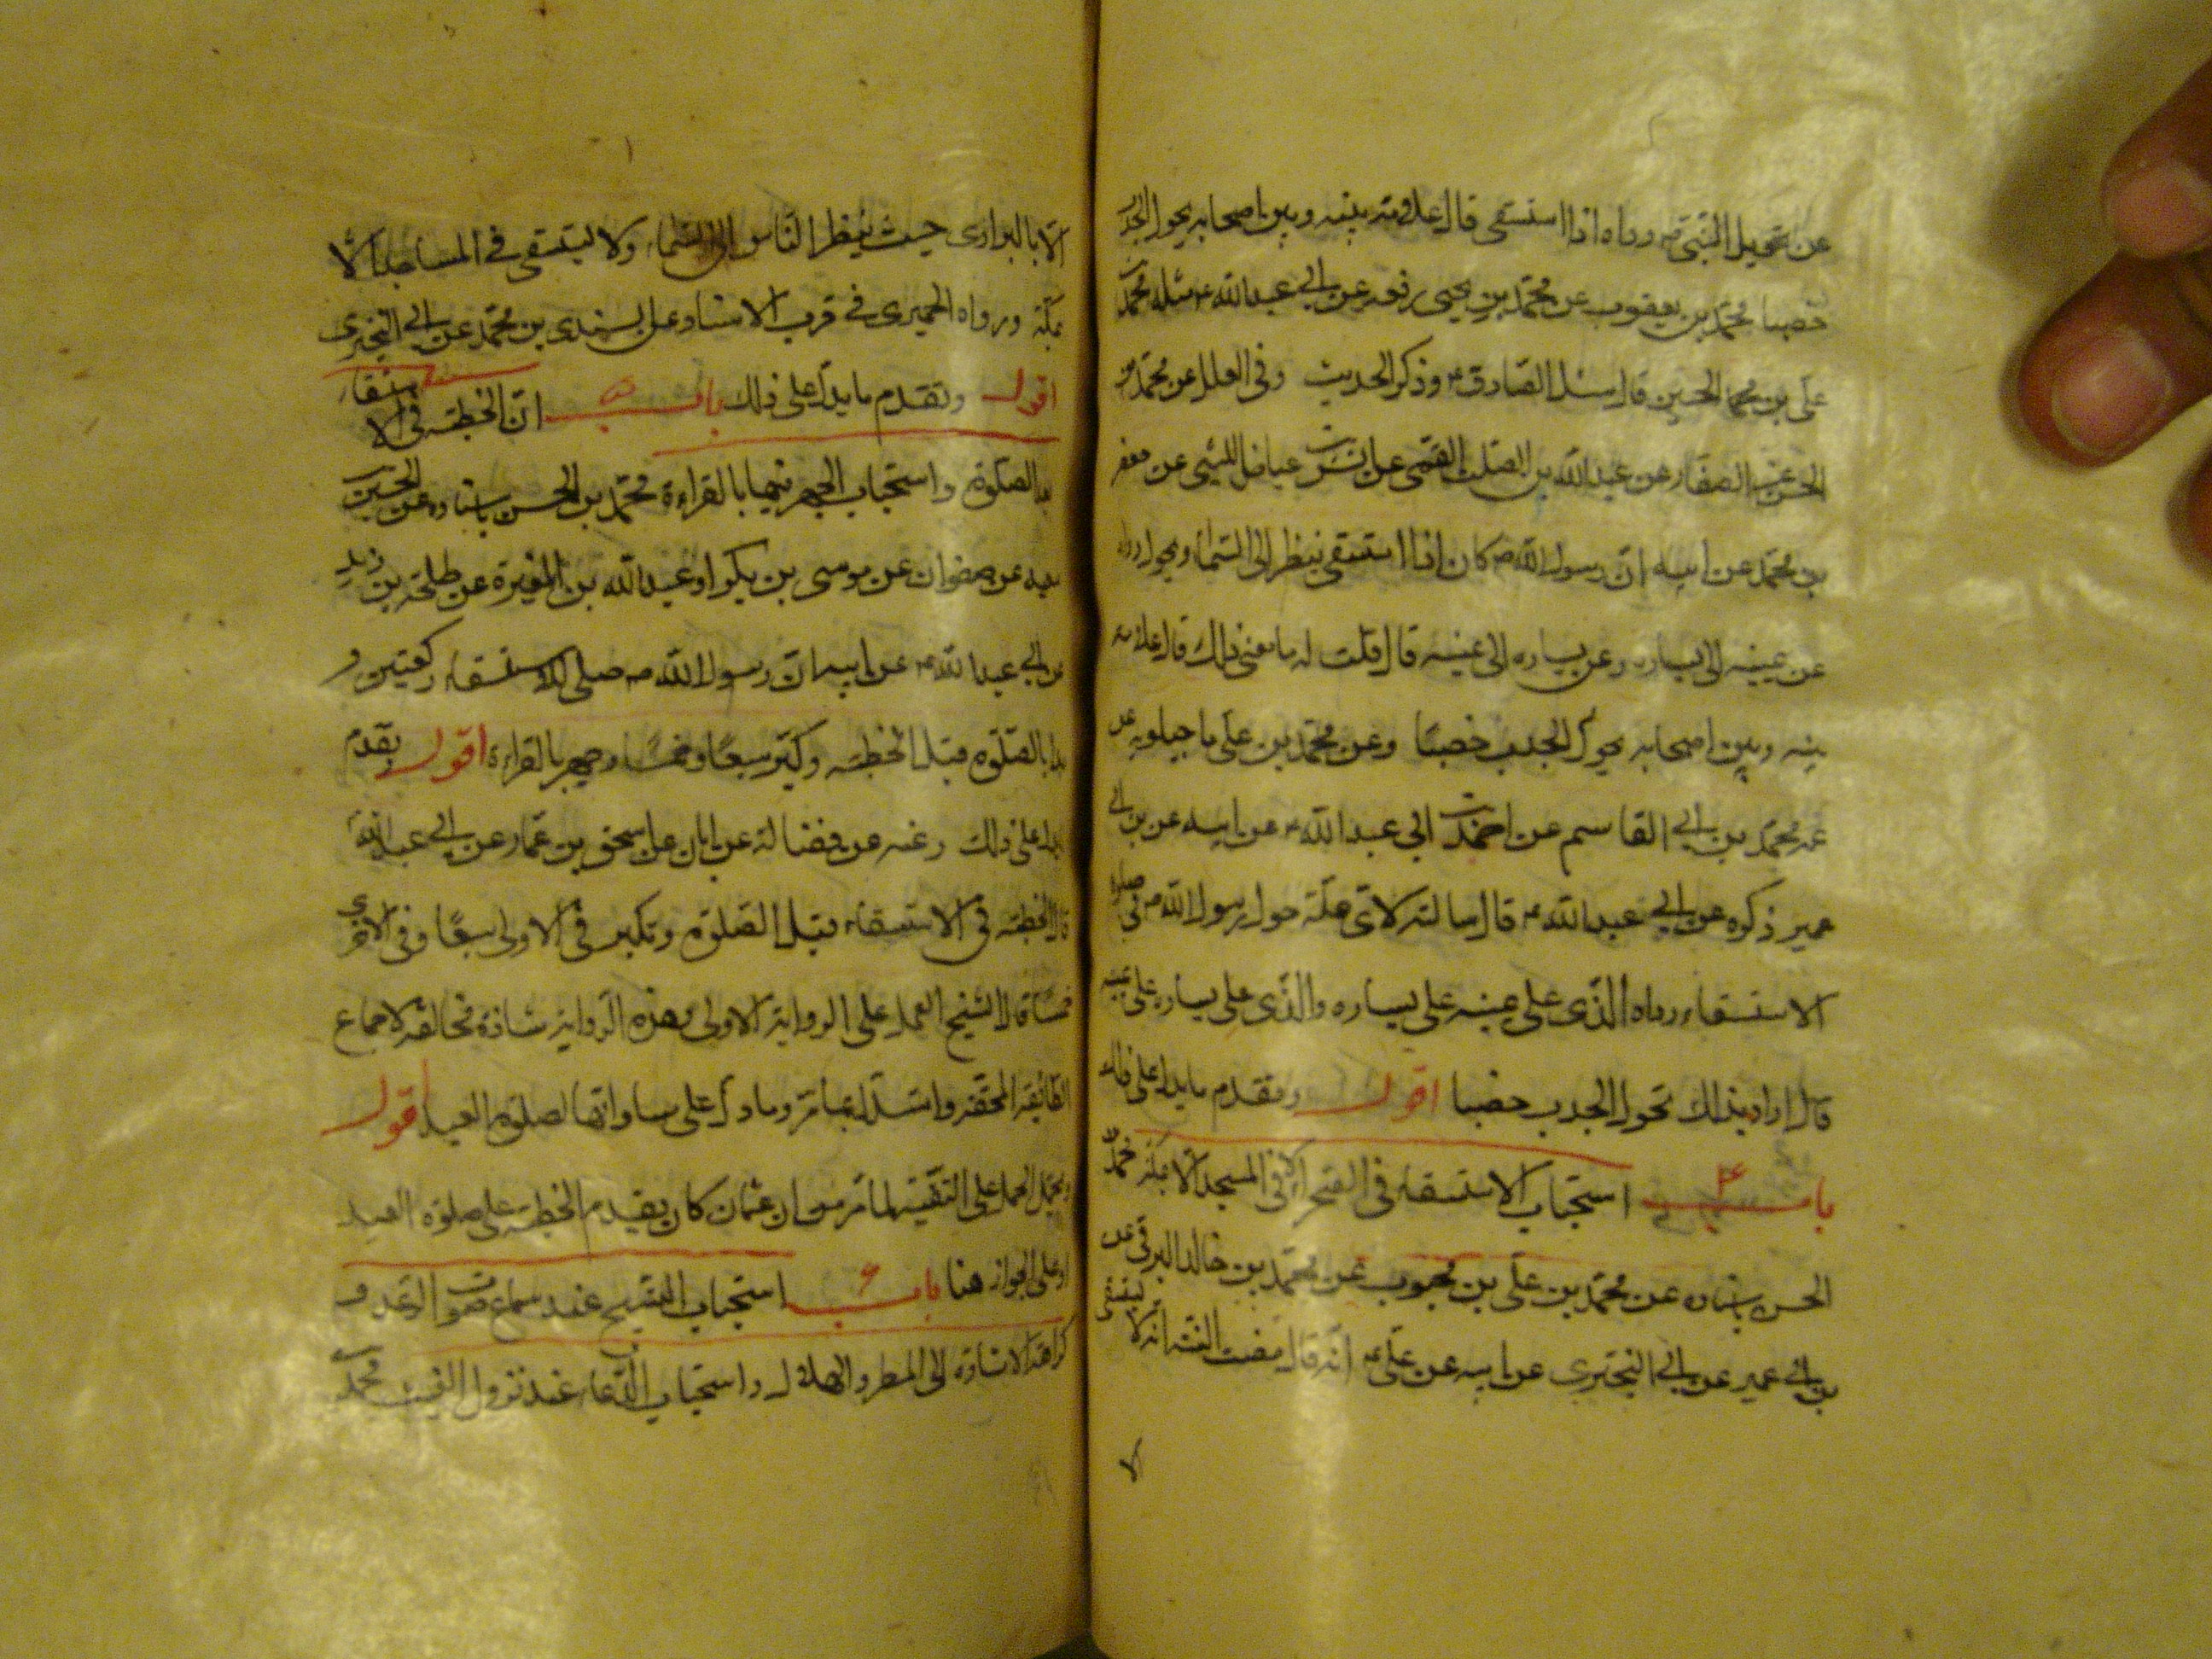 عن تحويل النبي ص رداه اذا استسقى قال علامة بينه وبين اصحابه يحول الجدب
خصبا محمد بن يعقوب عن محمد بن يحيى رفعه عن ابي عبد الله ع مثله محمد بن
علي بن الحسين قال سئل الصادق ع وذكر الحديث وفي العلل عن محمد بن
الحسن عن الصفار عن عبد الله بن الصلت القمي عن انس بن عياض الليثي عن جعفر
بن محمد عن ابيه ان رسول الله ص كان اذا استسقى ينظر الى السماء ويحول رداه
عن يمينه الى يساره وعن يساره الى يمينه قال قلت له ما معنى ذلك قال علامة
بينه وبين اصحابه يحول الجدب خصبا وعن محمد بن علي ماجيلويه عن
عمه محمد بن ابي القاسم عن احمد بن ابي عبد الله ع عن ابيه عن بن ابي
عمير ذكره عن ابي عبد الله ع قال سالته لاي علة حول رسول الله ص في صلوة
الاستسقاء رداه الذي على يمينه على يساره والذي على يساره على يمينه
قال اراد بذلك تحول الجدب خصبا اقول وتقدم ما يدل على ذلك
باب ۴ استحباب الاستسقاء في الصحراء لا في المسجد الا بمكة محمد بن
الحسن باسناده عن محمد بن علي بن محبوب عن محمد بن خالد البرقي عن
بن ابي عمير عن ابي البختري عن ابيه عن علي ع انه قال مضت السنة انه لا يستسقى
لا
الا بالبوادى حيث ينظر الناس الى السماء ولا يستسقى في المساجد الا
بمكة ورواه الحميرى في قرب الاسناد عن السندى بن محمد عن ابي البخترى
اقول وتقدم ما يدل على ذلك باب ۵ ان الخطبة في الاستسقاء
بعد الصلوة واستحباب الجهر فيها بالقراءة محمد بن الحسن باسناده عن الحسين بن
سعيد عن صفوان عن موسى بن بكر او عبد الله بن المغيرة عن طلحة بن زيد
عن ابي عبد الله ع عن ابيه ان رسول الله ص صلى للاستسقاء ركعتين و
بدا بالصلوة قبل الخطبة وكبر سبعا وخمسا وجهر بالقراءة اقول تقدم
ما يدل على ذلك وعنه عن فضالة عن ابان عن اسحق بن عمار عن ابي عبد الله ع
قال الخطبة في الاستسقاء قبل الصلوة وتكبر في الاولى سبعا وفي الاخرى
خمسا قال الشيخ العمل على الرواية الاولى وهذه الرواية شاذة مخالفة لاجماع
الطائفة المحقة واستدل بما مر وما دل على مساواتها لصلوة العيد اقول
ويحتمل الحمل على التقية لما مر من ان عثمان كان يقدم الخطبة على صلوة العيد
او على الجواز هنا باب ۶ استحباب التسبيح عند سماع صوت الرعد و
كراهة الاشارة الى المطر والهلال واستحباب الدعاء عند نزول الغيث محمد بن